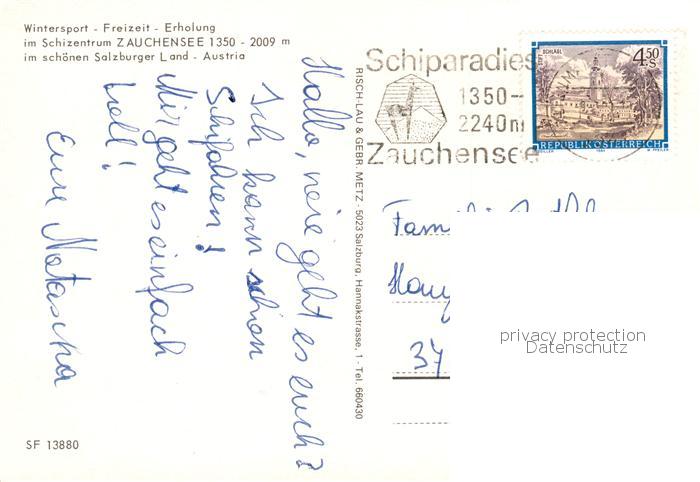 Wintersport - Freizeit - Erholung
im Schizentrum ZAUCHENSEE 1350 - 2009 m
im schönen Salzburger Land - Austria
Hallo, wie geht es euch?
Ich kann schon
Schifahren!
Mir geht es einfach
toll!
Eure Natascha
SF 13880
RISCH-LAU & GEBR. METZ - 5023 Salzburg, Hannakstrasse, 1 - Tel. 660430
Schiparadies
1350-
2240m
Zauchensee
STIFT SCHLÄGL
4.50 S
REPUBLIK ÖSTERREICH
ZEILLER 1981 W. PFEILER
37
privacy protection
Datenschutz